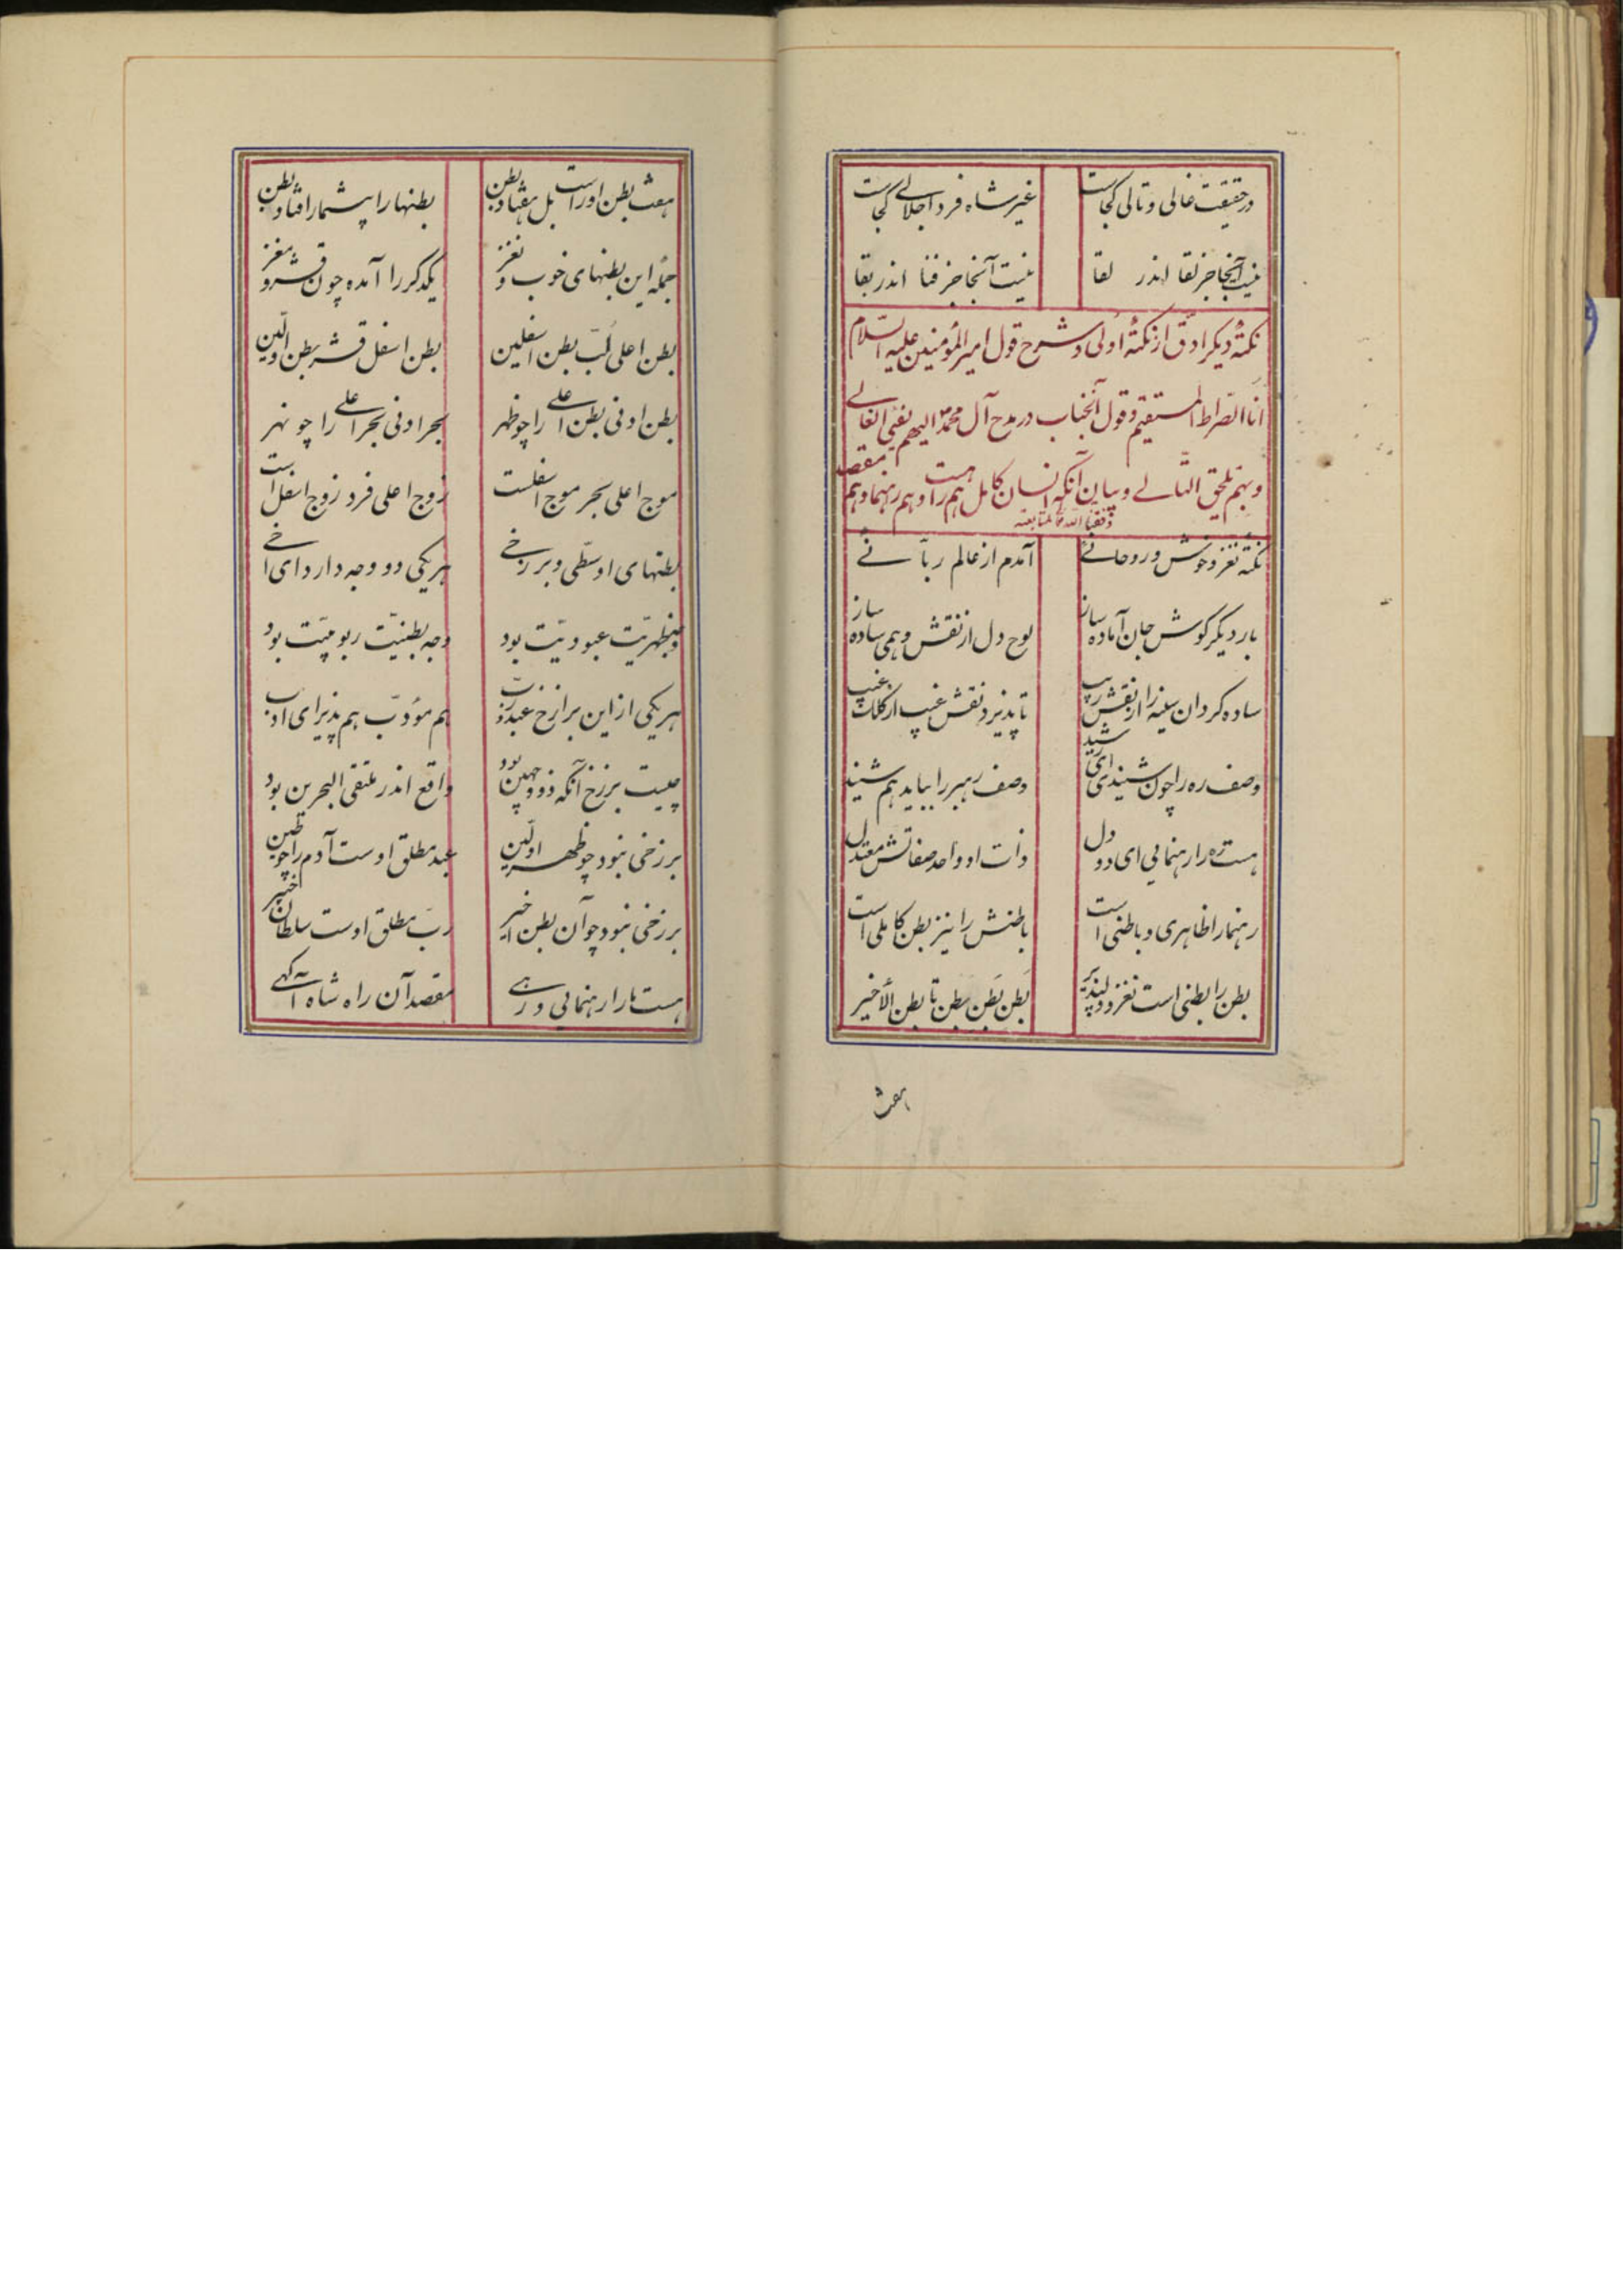 در حقیقت غالی و تالی کجاست غیر شاه فرد اجلالی کجاست
نیست آنجا جز لقا اندر لقا نیست آنجا جز فنا اندر بقا
نکتهٔ دیگر ادقّ از نکتهٔ اولی در شرح قول امیرالمؤمنین علیه السّلام
انا الصّراط المستقیم و قول آنجناب در مدح آل محمد الیهم یفیٔ الغالی
و بهم یلحق التالی و بیان آنکه انسان کامل هم راه است و هم رهنما و هم مقصد
وفقنا الله لمتابعته
نکتهٔ نغز و خوش و روحانیٔ آمدم از عالم ربّانیٔ
بار دیگر گوش جان آماده ساز لوح دل از نقش وهمی ساده ساز
ساده گردان سینه را از نقش ریب تا پذیرد نقش غیب از کلک غیب
وصف ره را چون شنیدی ای رشید وصف رهبر را بباید هم شنید
هست ره را رهنمایی ای دو دل ذات او واحد صفاتش معتدل
رهنما را ظاهری و باطنی است باطنش را نیز بطن کاملی است
بطن را بطنی است نغز و دلپذیر بطن بطن بطن تا بطن الأخیر
هفت
هفت بطن او راست بل هفتاد بطن بطنها را بیشمار افتاد بطن
جملهٔ این بطنهای خوب و نغز یکدگر را آمده چون قشر و مغز
بطن اعلی لبّ بطن اسفلین بطن اسفل قشر بطن اوّلین
بطن ادنی بطن اعلی را چو ظهر بحر ادنی بحر اعلی را چو نهر
موج اعلی بحر موج اسفلست زوج اعلی فرد زوج اسفل است
بطنهای اوسطی و برزخی هر یکی دو وجه دارد ای اخی
وجه ظهریّت عبودیّت بود وجه بطنیّت ربوبیّت بود
هر یکی از این برازخ عبد و ربّ هم مؤدّب هم پذیرای ادب
چیست برزخ آنکه ذو وجهین بود واقع اندر ملتقی البحرین بود
برزخی نبود چو ظهر اولین عبد مطلق اوست آدم را چو طین
برزخی نبود چو آن بطن اخیر ربّ مطلق اوست سلطان خبیر
هست ما را رهنمائی و رهی مقصد آن راه شاه آگهی